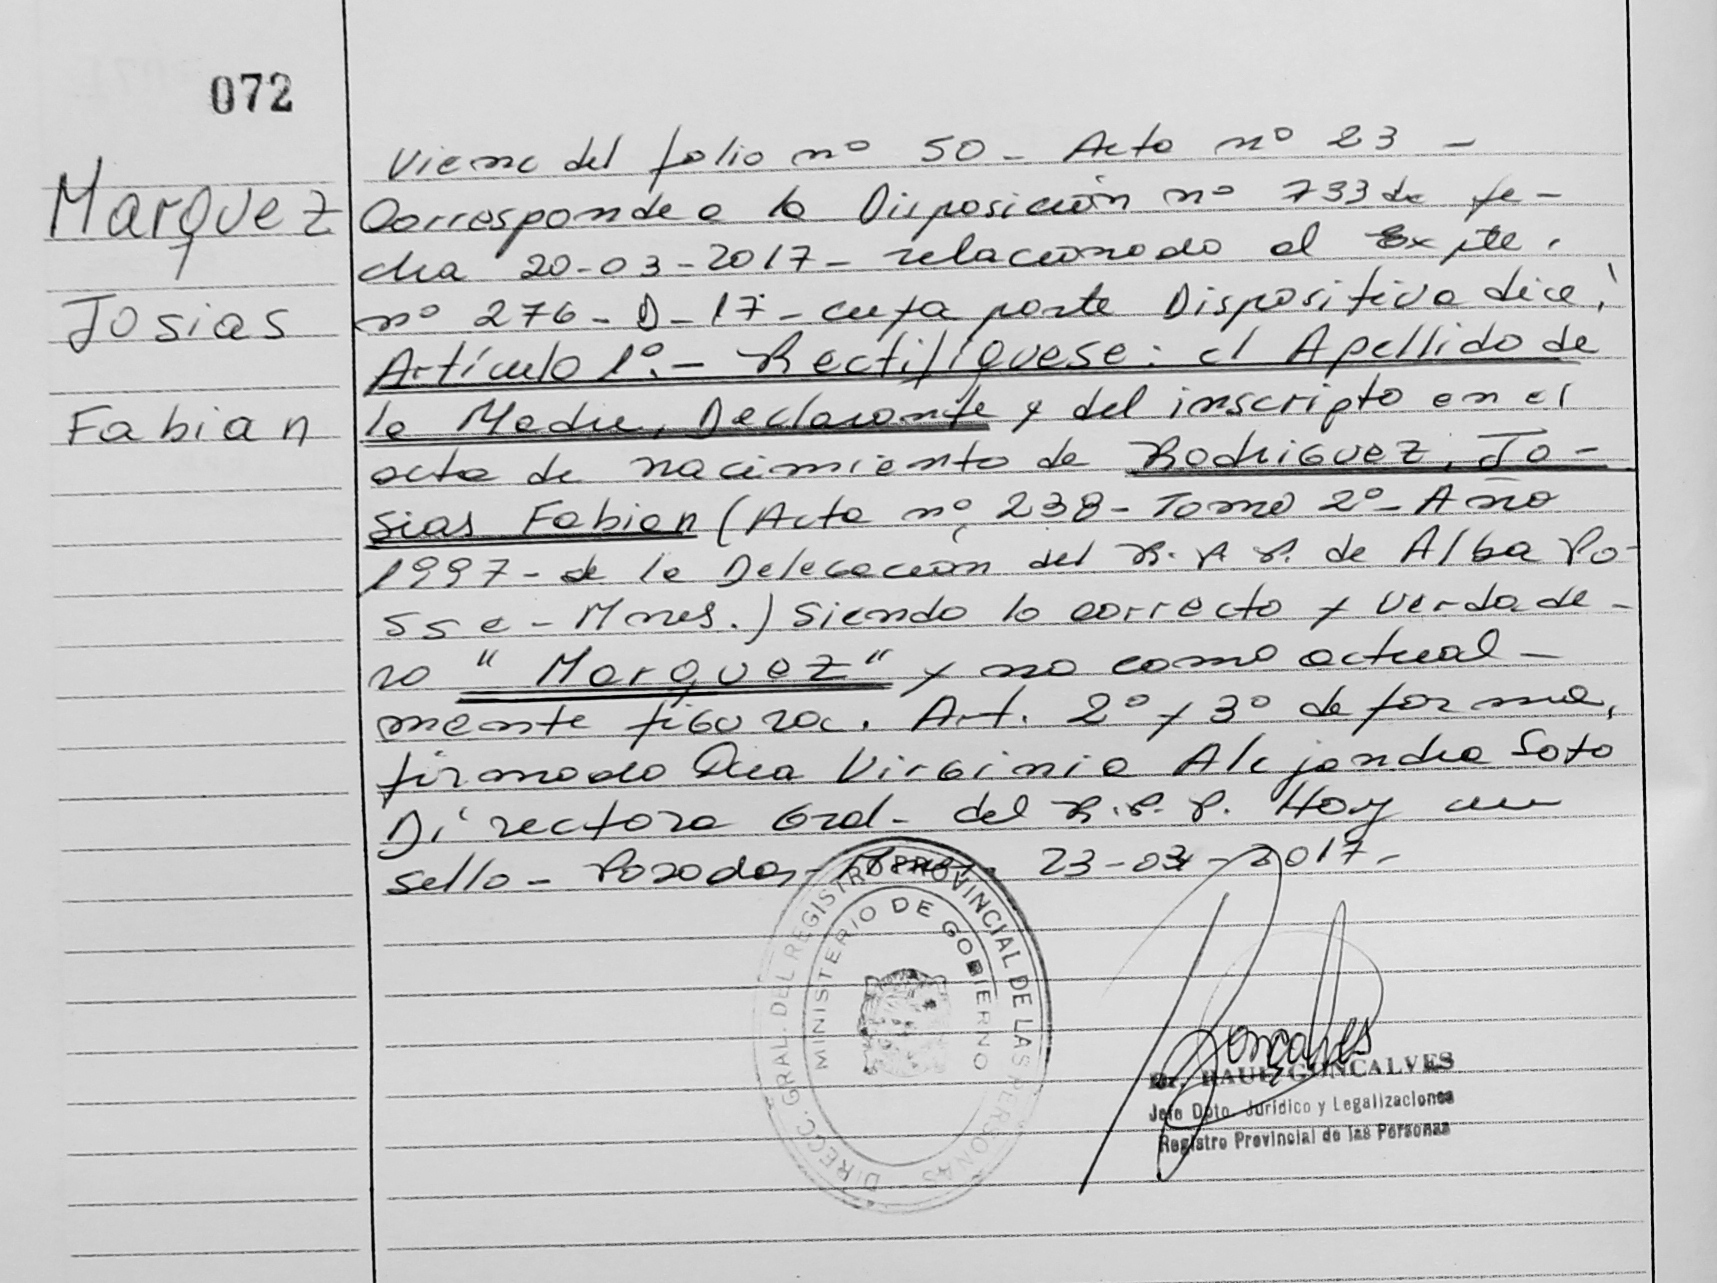 072
Marquez
Josias
Fabian
Viene del folio nº 50 - Acta nº 23 -
Corresponde a la Disposición nº 733 de fe-
cha 20-03-2017 - relacionado al Expte.
nº 276 - D - 17 - cuya parte Dispositiva dice:
Artículo 1º.- Rectifíquese: el Apellido de
la Madre, Declarante y del inscripto en el
acta de nacimiento de Rodriguez, Jo-
sias Fabian (Acta nº 238 - Tomo 2º - Año
1997 - de la Delegación del R. P. P. de Alba Po-
sse - Mnes.) Siendo lo correcto y verdade-
ro "Marquez" y no como actual-
mente figura. Art. 2º y 3º de forma,
firmado Dra Virginia Alejandra Soto
Directora Gral. del R. P. P. Hay un
sello - Posadas, Mnes. 23-03-2017.
DIRECC. GRAL. DEL REGISTRO PROVINCIAL DE LAS PERSONAS
MINISTERIO DE GOBIERNO
Goncalves
Dr. RAUL GONCALVES
Jefe Dpto. Jurídico y Legalizaciones
Registro Provincial de las Personas